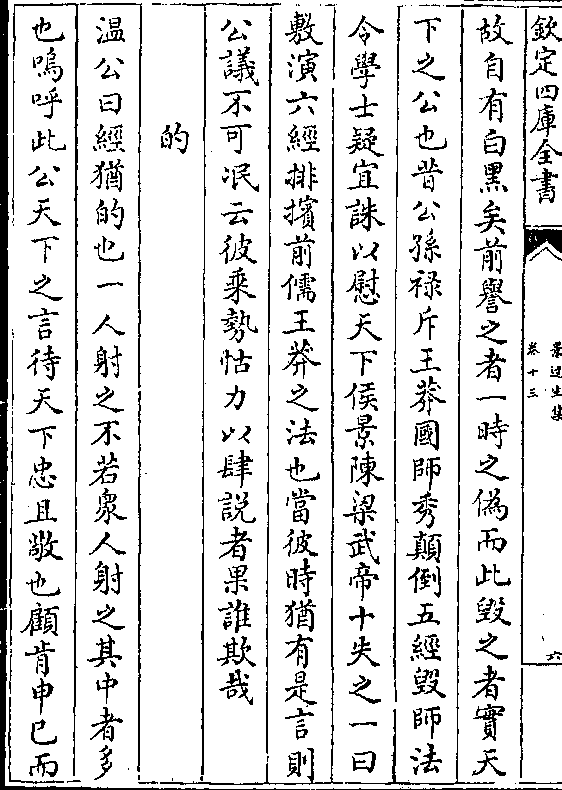 欽定四庫全書
景迂生集
卷十三
六
故自有白黑矣前譽之者一時之偽而此毀之者實天
下之公也昔公孫祿斥王莽國師秀顛倒五經毀師法
令學士疑宜誅以慰天下侯景陳梁武帝十失之一曰
敷演六經排擯前儒王莽之法也當彼時猶有是言則
公議不可泯云彼乘勢怙力以肆説者果誰欺哉
的
温公曰經猶的也一人射之不若衆人射之其中者多
也嗚呼此公天下之言待天下忠且敬也顧肯申已而